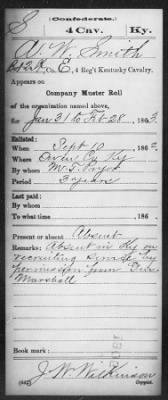 (Confederate.)
S 4 Cav. Ky.
A. W. Smith
Co. E, 4 Reg't Kentucky Cavalry.
Appears on
Company Muster Roll
of the organization named above,
for Jan 31 to Feb 28, 1863
Enlisted:
When Sept 10, 1862
Where Ky
By whom M. T.
Period 3 years
Last paid:
By whom
To what time , 186
Present or absent Absent
Remarks: Absent in Ky on
recruiting service by
permission from Gen
Marshall
Book mark:
J. W. Wilkinson
(642) Copyist.